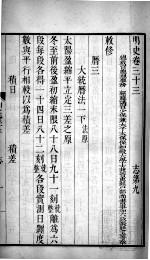 明史卷三十三　志第九
敕修
曆三
大統曆法一下法原
太陽盈縮平立定三差之原
冬至前後盈初縮末限八十八日九十一刻就整離爲六
段每段各得一十四日八十二刻就整各段實測日躔度
數與平行相較以爲積差
積日　積差